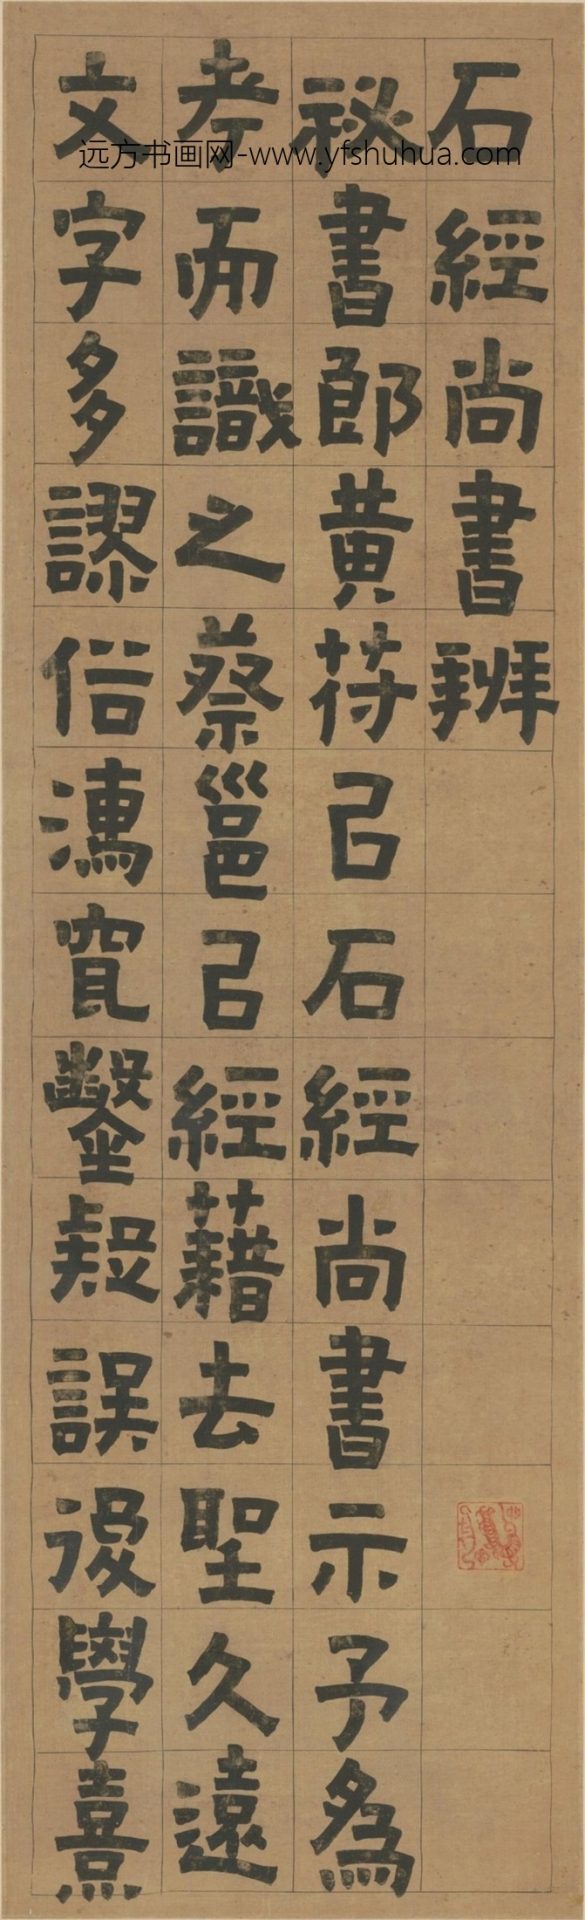 石經尚書辨
秘書郎黄符㠯石經尚書示予為
考而識之蔡邕㠯經藉去聖久遠
文字多謬俗濡寊鑿疑誤後學熹
远方书画网-www.yfshuhua.com